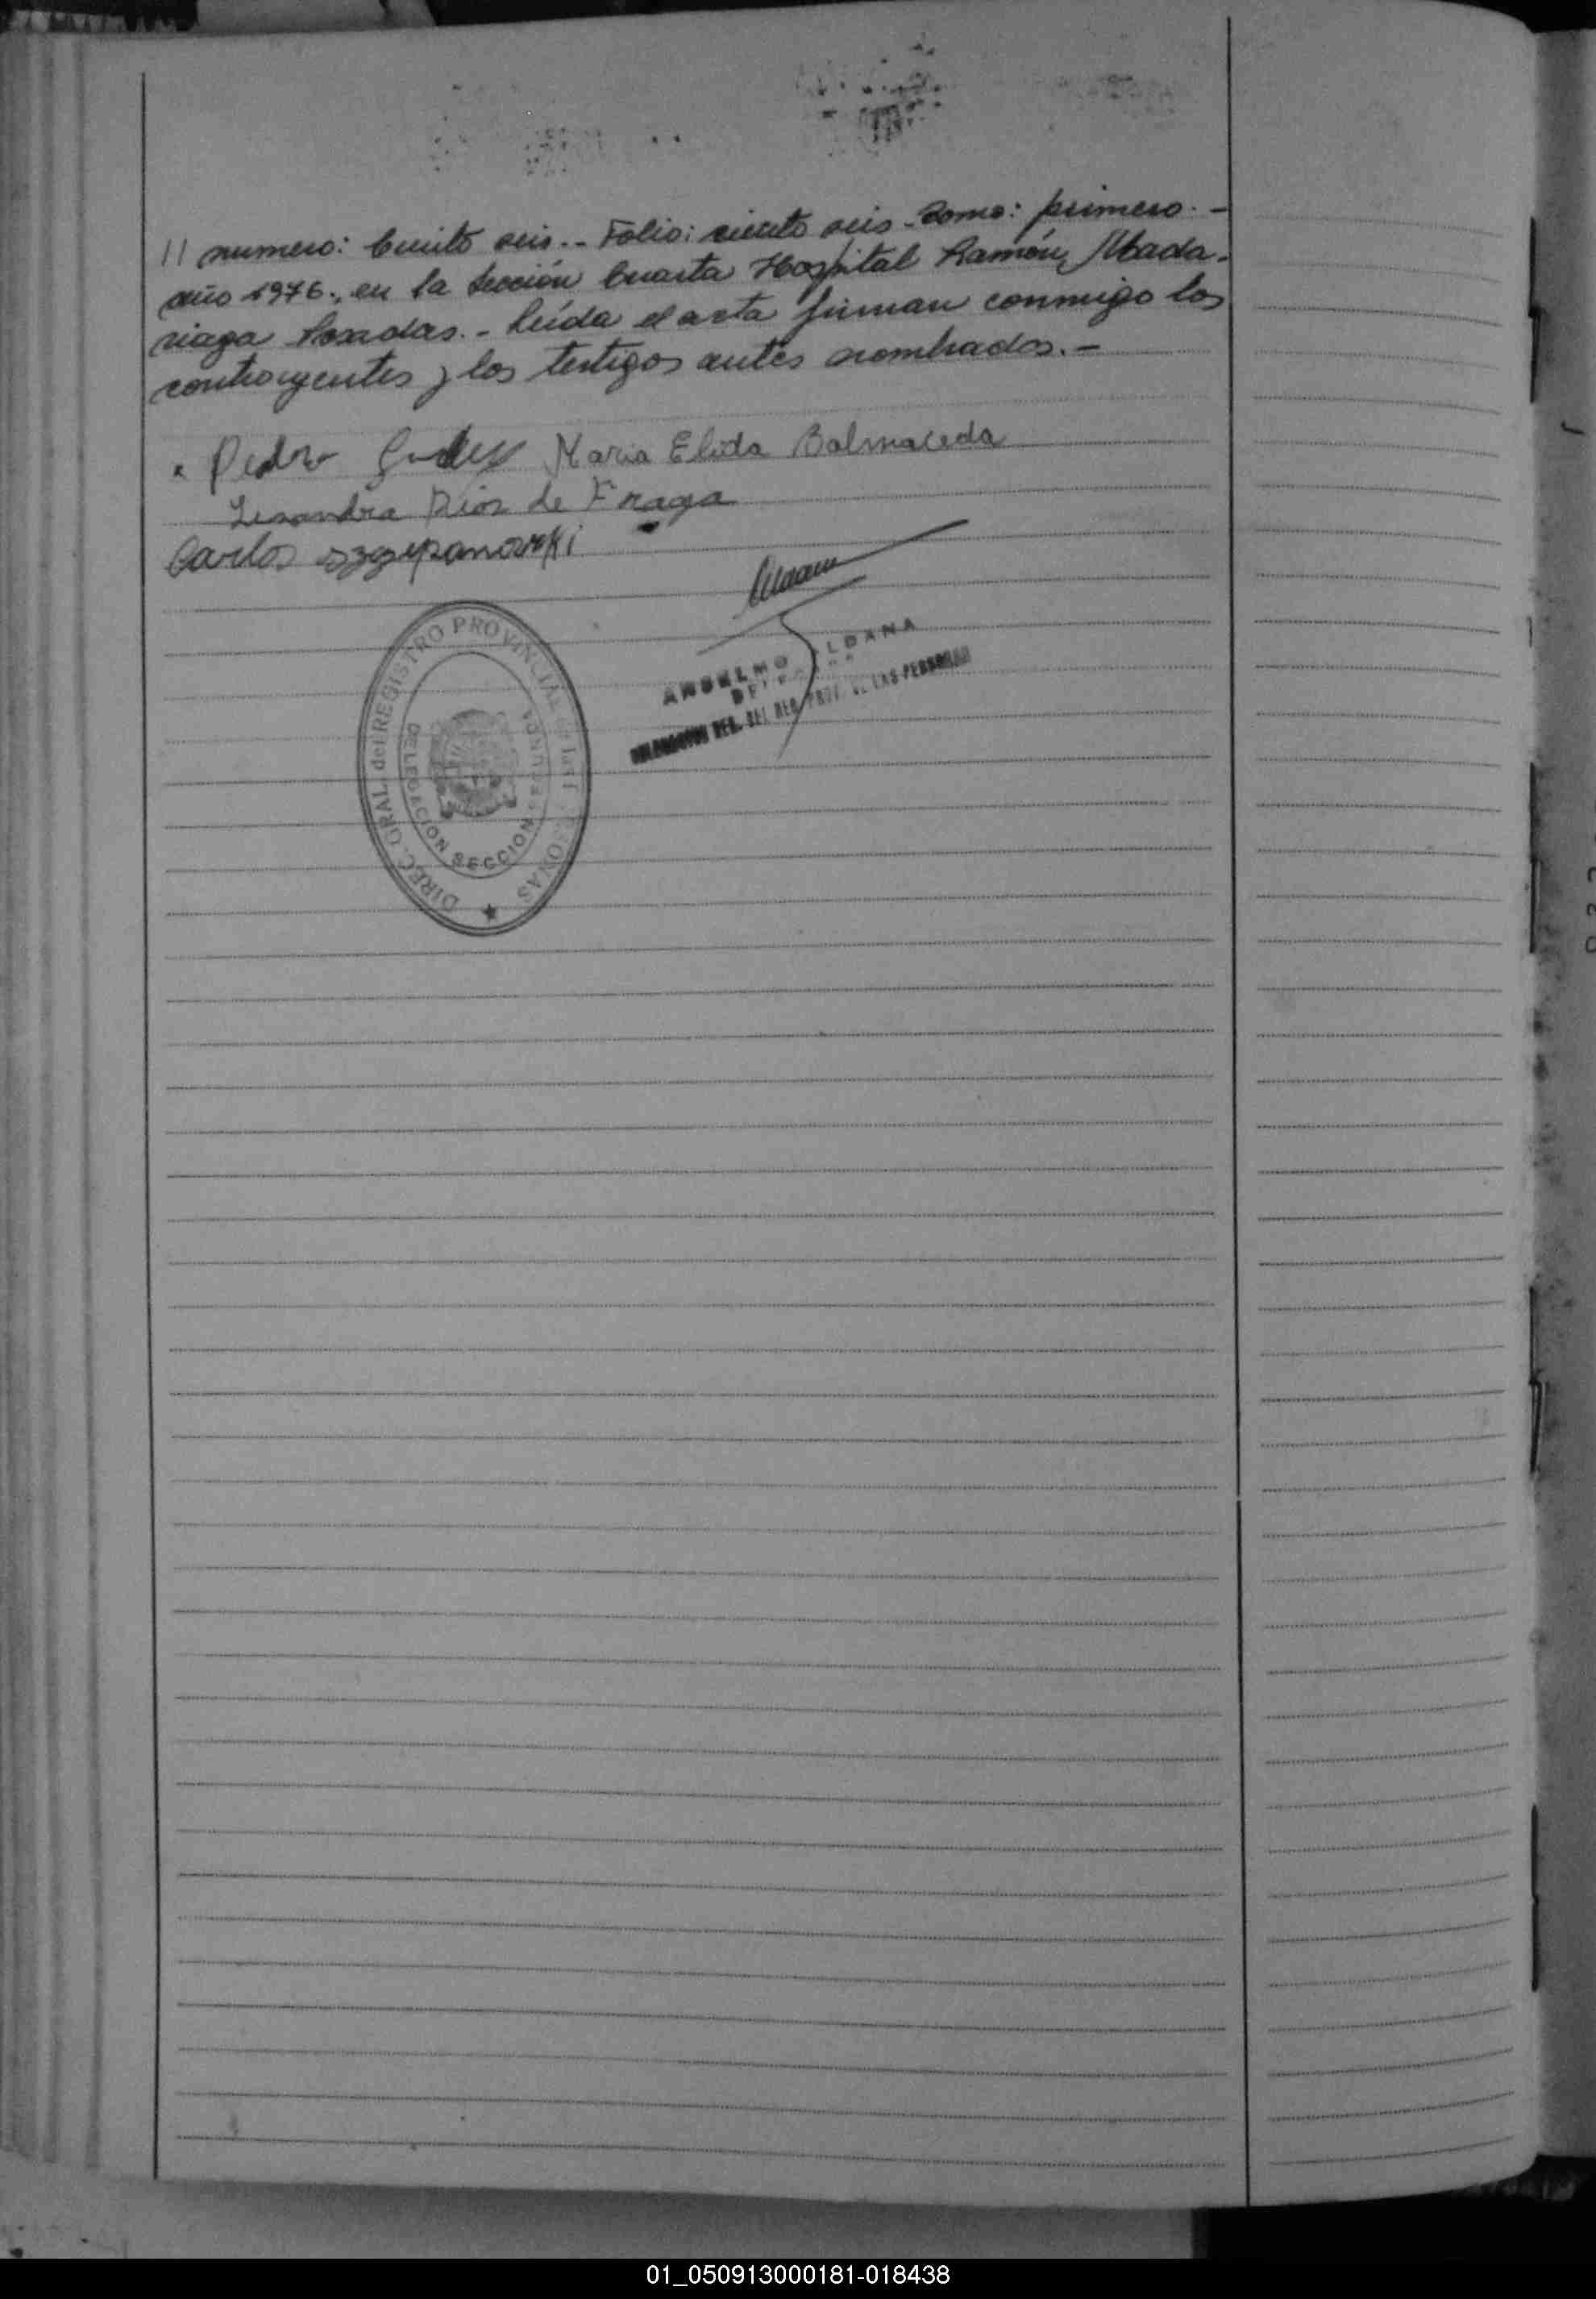 // numero: Ciento seis.- Folio: ciento seis.- Tomo: primero.-
año 1976., en la Sección Cuarta Hospital Ramón Mada-
riaga Posadas.- Leída el acta firman conmigo los
contrayentes y los testigos antes nombrados.-
Pedro Maria Elida Balmaceda
Lisandra Rios de Fraga
Carlos Szczepanowski
ANSELMO ALDANA
REG. DEL REG. PROV. DE LAS PERSONAS
DIREC. GRAL. del REGISTRO PROVINCIAL de las PERSONAS
DELEGACION SECCION SEGUNDA
01_050913000181-018438